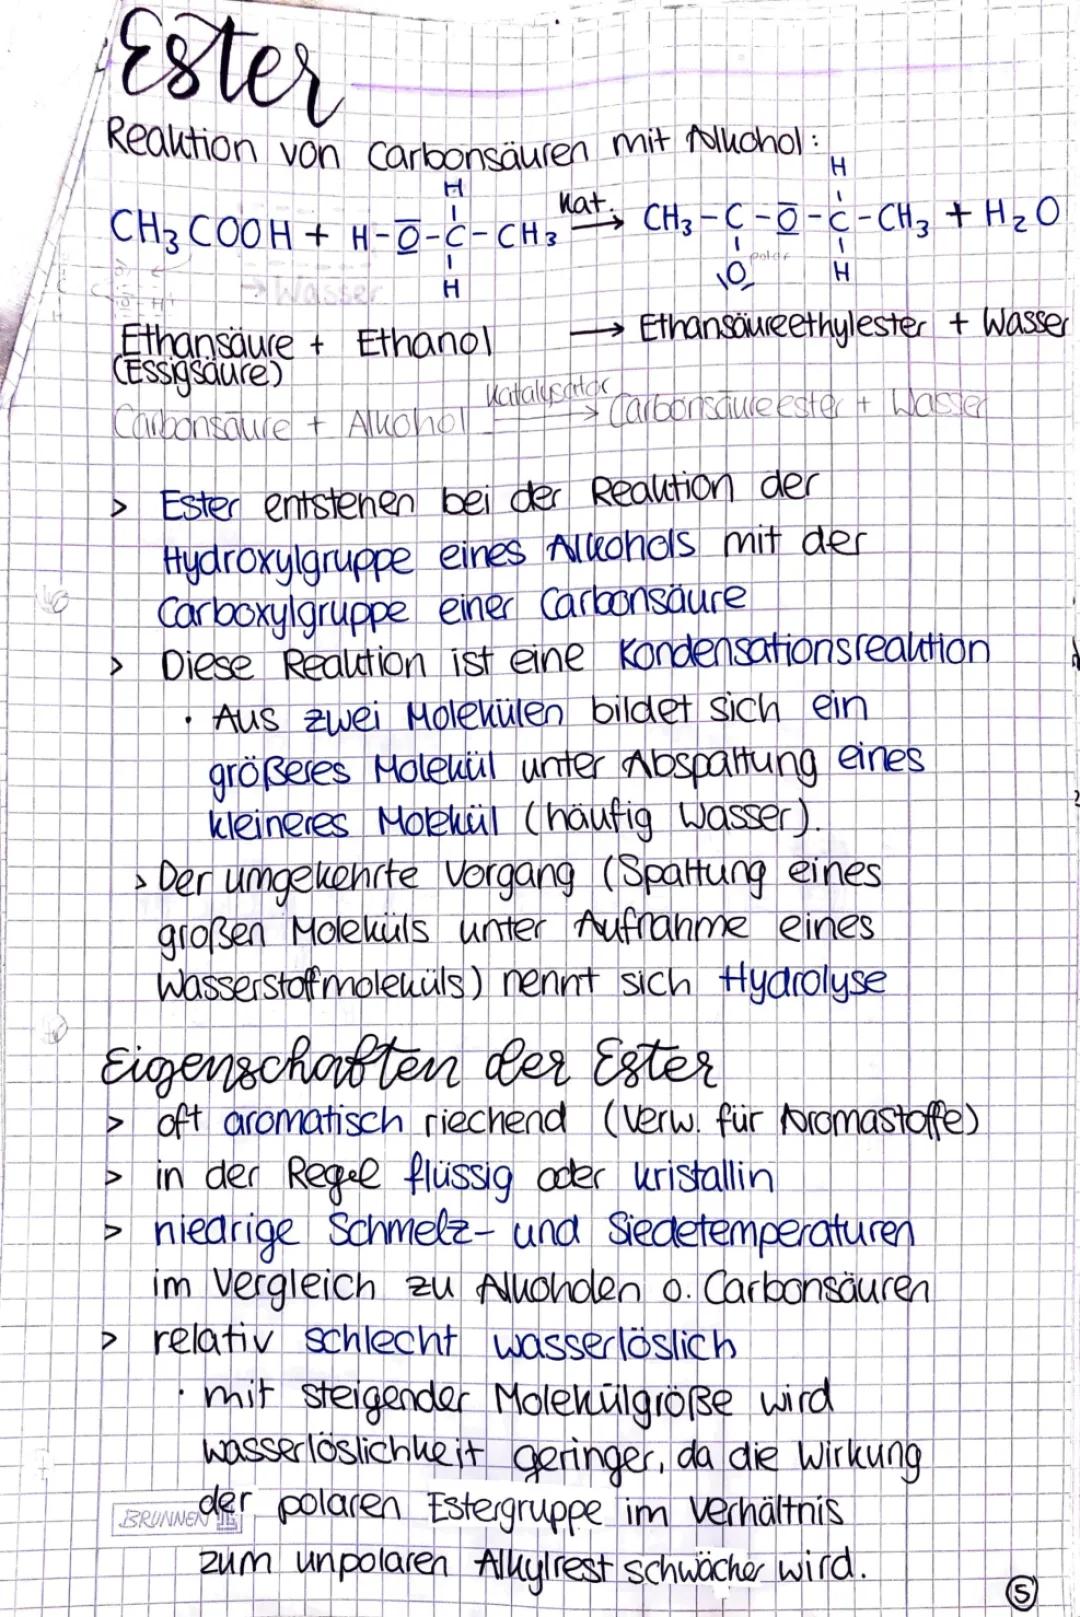 Ester
Reaktion von Carbonsäuren mit Alkohol:
H H
CH₃COOH + H-O̅-C-CH₃ Kat. → CH₃-C-O̅-C-CH₃ + H₂O
H |O̲ polar H
→ Wasser
Ethansäure + Ethanol → Ethansäureethylester + Wasser
(Essigsäure)
Carbonsäure + Alkohol Katalysator → Carbonsäureester + Wasser
> Ester entstehen bei der Reaktion der
Hydroxylgruppe eines Alkohols mit der
Carboxylgruppe einer Carbonsäure
> Diese Reaktion ist eine Kondensationsreaktion
· Aus zwei Molekülen bildet sich ein
größeres Molekül unter Abspaltung eines
kleineres Molekül (häufig Wasser).
> Der umgekehrte Vorgang (Spaltung eines
großen Moleküls unter Aufnahme eines
Wasserstoffmoleküls) nennt sich Hydrolyse
Eigenschaften der Ester
> oft aromatisch riechend (Verw. für Aromastoffe)
> in der Regel flüssig oder kristallin
> niedrige Schmelz- und Siedetemperaturen
im Vergleich zu Alkoholen o. Carbonsäuren
> relativ schlecht wasserlöslich
· mit steigender Molekülgröße wird
wasserlöslichkeit geringer, da die Wirkung
der polaren Estergruppe im Verhältnis
zum unpolaren Alkylrest schwächer wird.
BRUNNEN
5